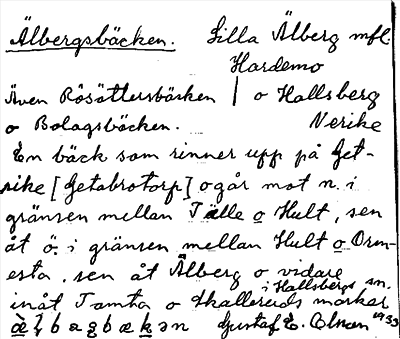 Älbergsbäcken. Lilla Älberg mfl.
Hardemo
Även Rösättersbäcken | o Hallsberg
o Bolagsbäcken. Nerike
En bäck som rinner upp på Get-
rike [Getabrotorp] o går mot n. i
gränsen mellan Tälle o Hult, sen
åt ö. i gränsen mellan Hult o Orm-
esta, sen åt Älberg o vidare
i Hallsbergs sn.
inåt Tomta o Skallereds marker
Gustaf E. Olsson 1933